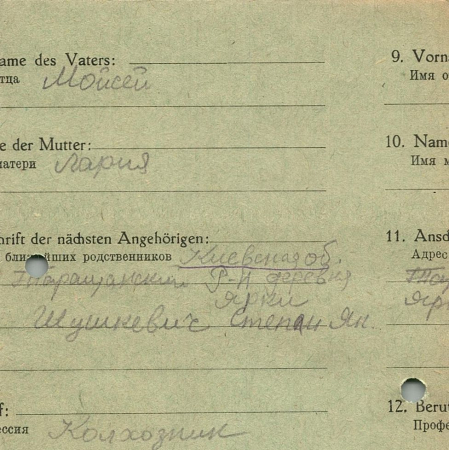 ame des Vaters:
тца Мойсей
e der Mutter:
матери Мария
hrift der nächsten Angehörigen:
ближайших родственников Киевская об.
Таращанский Р-Н деревня
Ярки
Шушкевич Степан Як.
f:
ессия Колхозник
9. Vorna
Имя о
10. Name
Имя м
11. Ansch
Адрес
Та
Ярк
12. Beru
Профе